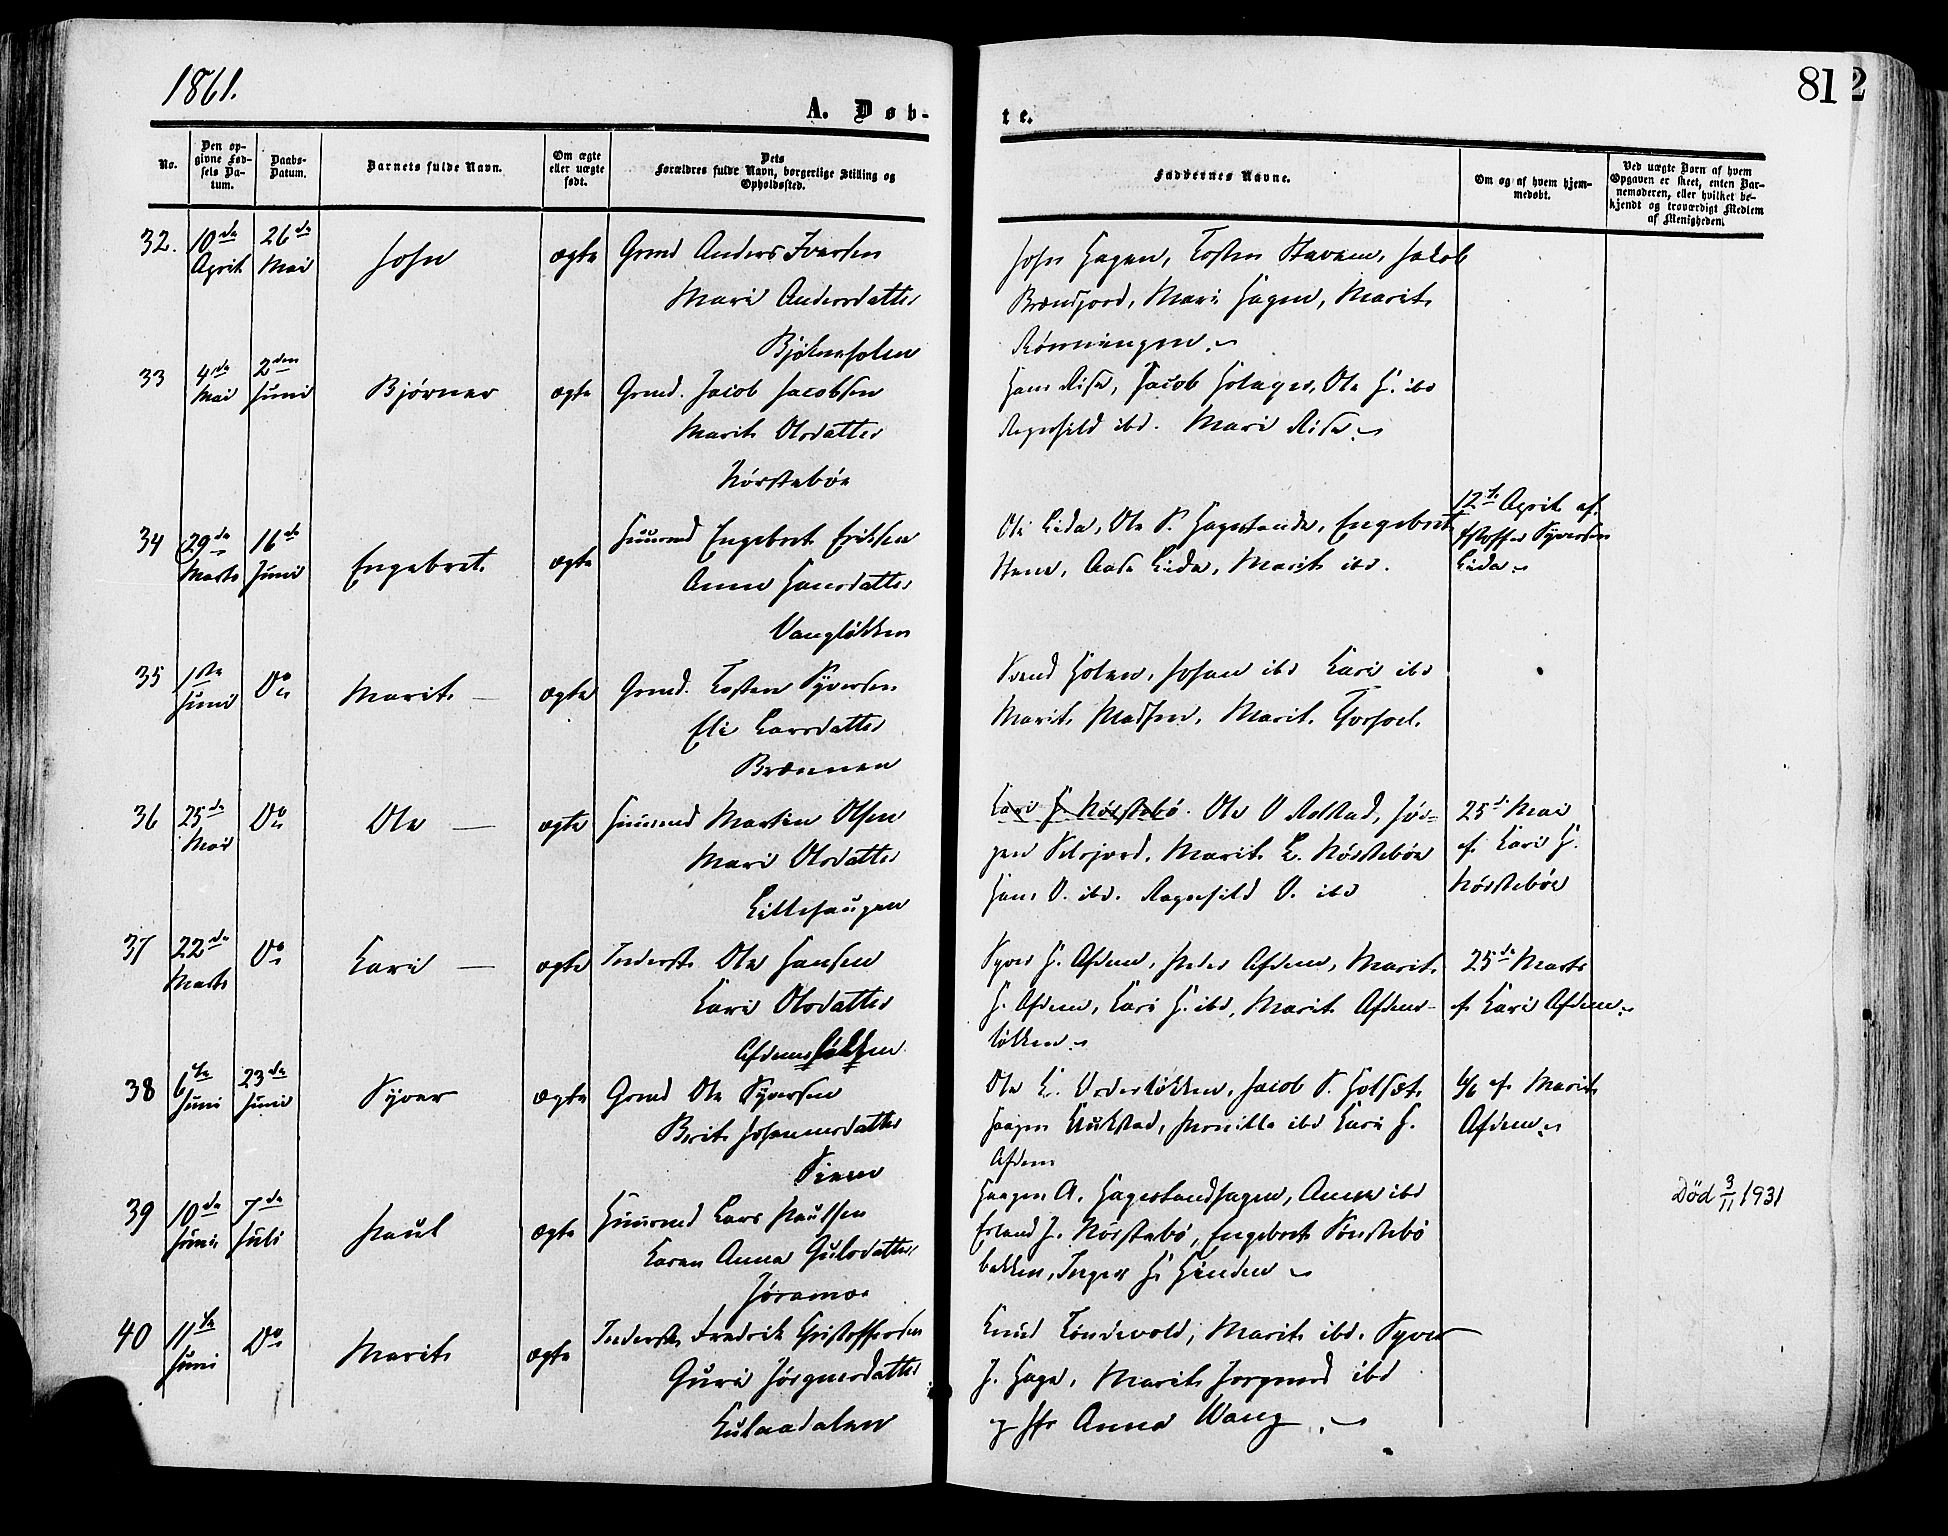 1861.
812
A. Døb-
te.
No.
Den op-
givne Fød-
sels Da-
tum.
Daabs-
Datum.
Barnets fulde Navn.
Om ægte
eller uægte
født.
Dets
Forældres fulde Navn, borgerlige Stilling og
Opholdssted.
Faddernes Navne.
Om og af hvem hjem-
medøbt.
Ved uægte Børn af hvem
Opgaven er skeet, enten Bar-
nemoderen, eller hvilket be-
kjendt og troværdigt Medlem
af Menigheden.
32. 10de April 26de Mai John ægte Grmd Anders Iversen
Mari Andersdatter
Bjølverholen
John Hagen, Tosten Stavem, Jakob
Brændjord, Mari Hagen, Marit
Rønningen
33 4de Mai 2den Juni Bjørner ægte Grmd. Jacob Jacobsen
Marit Olsdatter
Nørstebøe
Hans Risa, Jacob Holager, Ole H. ibd
Ragnhild ibd. Mari Risa
34 29de Marts 16de Juni Engebret ægte Huusmd Engebret Eriksen
Anne Hansdatter
Vangløkken
Ole Lida, Ole S. Hagestande, Engebret
Stene, Aase Lida, Marit ibd.
12te April af
Syversen
Lida
35 1ste Juni Do Marit ægte Grmd. Tosten Syversen
Eli Larsdatter
Brænnen
Svend Holen, Johan ibd Kari ibd
Marit Madsen, Marit
36 25de Mai Do Ole ægte Huusmd Martin Olsen
Mari Olsdatter
Lillehaugen
Kari H Nørstebø. Ole O Rolstad, Jør-
gen Selsjord, Marit L. Nørstebøe
Hans O. ibd. Ragnhild O. ibd
25de Mai
af Kari H.
Nørstebøe
37 22de Marts Do Kari ægte Inderst Ole Hansen
Kari Olsdatter
Afdemsløkken
Syver H. Afdem, Peder Afdem, Marit
H. Afdem, Kari H. ibd, Marit Afdems-
løkken
25de Marts
af Kari Afdem
38 6te Juni 23de Juni Syver ægte Grmd Ole Syversen
Berit Johannesdatter
Ole L. Jacob S. Holset,
Haagen Klukstad, Pernille ibd Kari H.
Afdem
6/6 af Marit
Afdem
39 10de Juni 7de Juli Paul ægte Huusmd Lars Paulsen
Karen Anna Gulsdatter
Jøramoe
Haagen A. Hagestandhagen, Anne ibd
Erland J. Nørstebø, Engebret Sønstebø
bakken, Inger H
Død 3/11 1931
40 11te Juni Do Marit ægte Inderst Fredrik Christoffersen
Guri Jørgensdatter
Kulaadalen
Knud Tøndevold, Marit ibd. Syver
J. Hage, Marit Jørgensd ibd
og Jfr Anna Wang